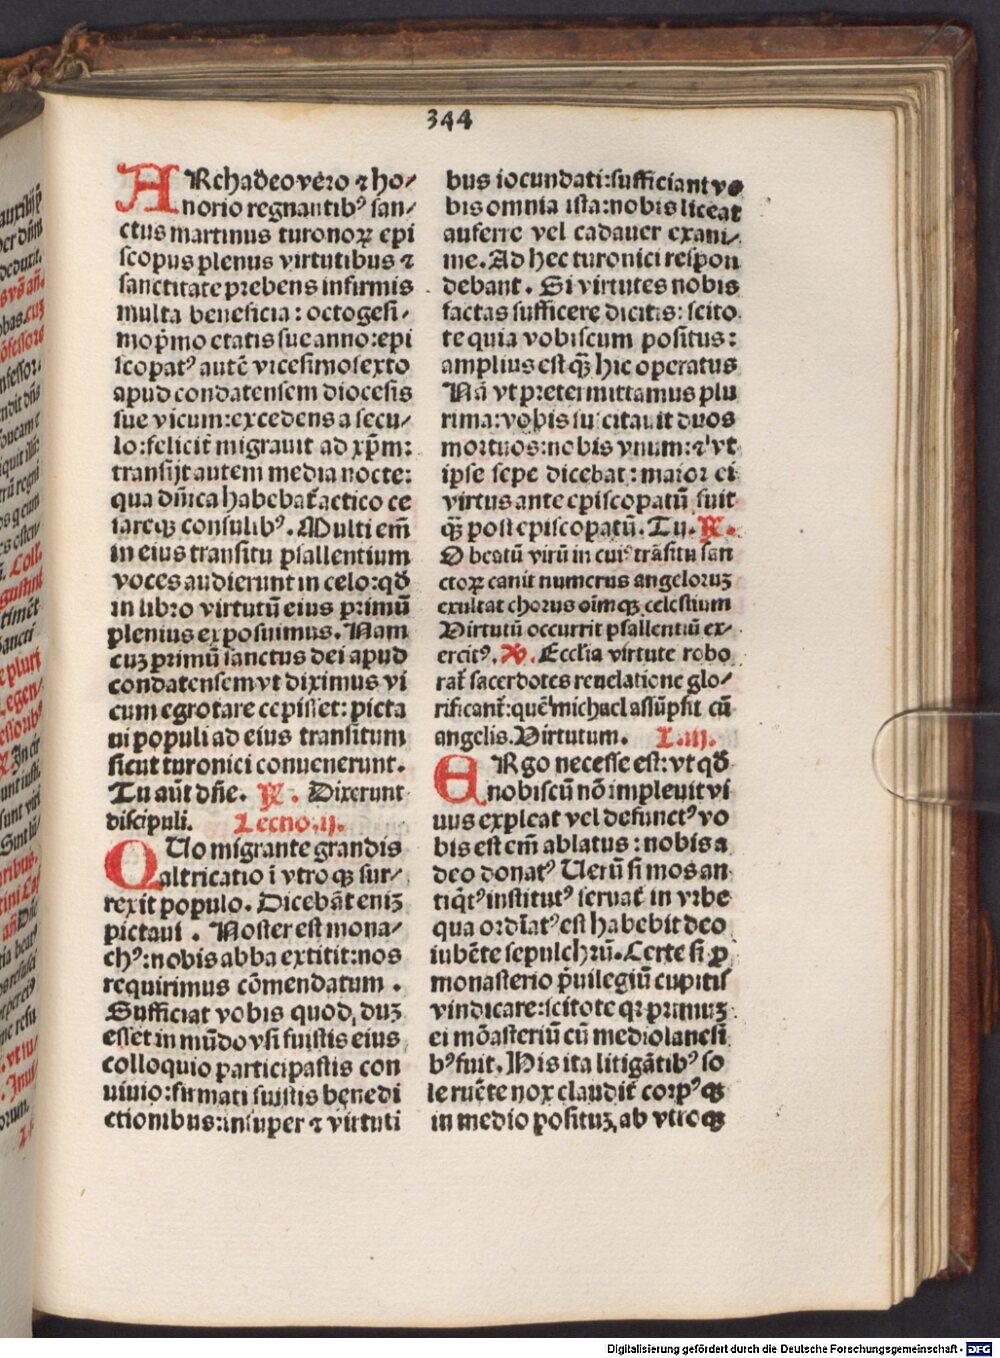 344
ARchadeo vero ⁊ ho⸗
norio regnantibꝰ san⸗
ctus martinus turonoꝝ epi
scopus plenus virtutibus ⁊
sanctitate prebens infirmis
multa beneficia : octogesi⸗
mop̄mo etatis sue anno: epi
scopatꝰ autē vicesimosexto
apud condatensem diocesis
sue vicum: excedens a secu⸗
lo: felicit̄ migrauit ad xp̄m:
transijt autem media nocte:
qua dn̄ica habebat̄ actico ce
sareqꝫ consulibꝰ. Multi em̄
in eius transitu psallentium
voces audierunt in celo: qð
in libro virtutū eius primū
plenius exposuimus. Nam
cuꝫ primū sanctus dei apud
condatensem vt diximus vi
cum egrotare cepisset: picta
ui populi ad eius transitum
sicut turonici conuenerunt.
Tu aūt dn̄e. ℟. Dixerunt
discipuli. Lectio.ij.
QUo migrante grandis
altricatio ī vtroqꝫ sur⸗
rexit populo. Dicebāt eniꝫ
pictaui . Noster est mona⸗
chꝰ: nobis abba extitit: nos
requirimus cōmendatum .
Sufficiat vobis quod, duꝫ
esset in mūdo vsi fuistis eius
colloquio participastis con
uiuio: firmati fuistis benedi
ctionibus: insuper ⁊ virtuti
bus iocundati: sufficiant vo
bis omnia ista: nobis liceat
auferre vel cadauer exani⸗
me. Ad hec turonici respon
debant . Si virtutes nobis
factas sufficere dicitis: scito
te quia vobiscum positus:
amplius est qꝫ̄ hic operatus
Nā vt pretermittamus plu
rima: vobis suscitauit duos
mortuos: nobis vnum: ⁊ vt
ipse sepe dicebat : maior ei
virtus ante episcopatū fuit
qꝫ̄ post episcopatū. Tu. ℟.
O beatū virū in cuiꝰ trāsitu san
ctoꝝ canit numerus angeloruꝫ
exultat chorus oīmqꝫ celestium
Virtutū occurrit psallentiū ex⸗
ercitꝰ. ℣. Ecclīa virtute robo
rat̄ sacerdotes reuelatione glo⸗
rificant̄: quē michael assūpsit cū
angelis. Virtutum. L.iij.
ERgo necesse est: vt qð
nobiscū nō impleuit vi
uus expleat vel defunctꝰ vo
bis est em̄ ablatus : nobis a
deo donatꝰ Uerū si mos an
tiq̄tꝰ institutꝰ seruat̄ in vrbe
qua ordīatꝰ est habebit deo
iubēte sepulchrū. Certe si ꝓ
monasterio p̄uilegiū cupitis
vindicare: scitote qꝛ primuꝫ
ei mōasteriū cū mediolanēsi
bꝰ fuit. His ita litigātibꝰ so
le ruēte nox claudit̄ corpꝰqꝫ
in medio posituꝫ, ab vtroqꝫ
Digitalisierung gefördert durch die Deutsche Forschungsgemeinschaft - DFG